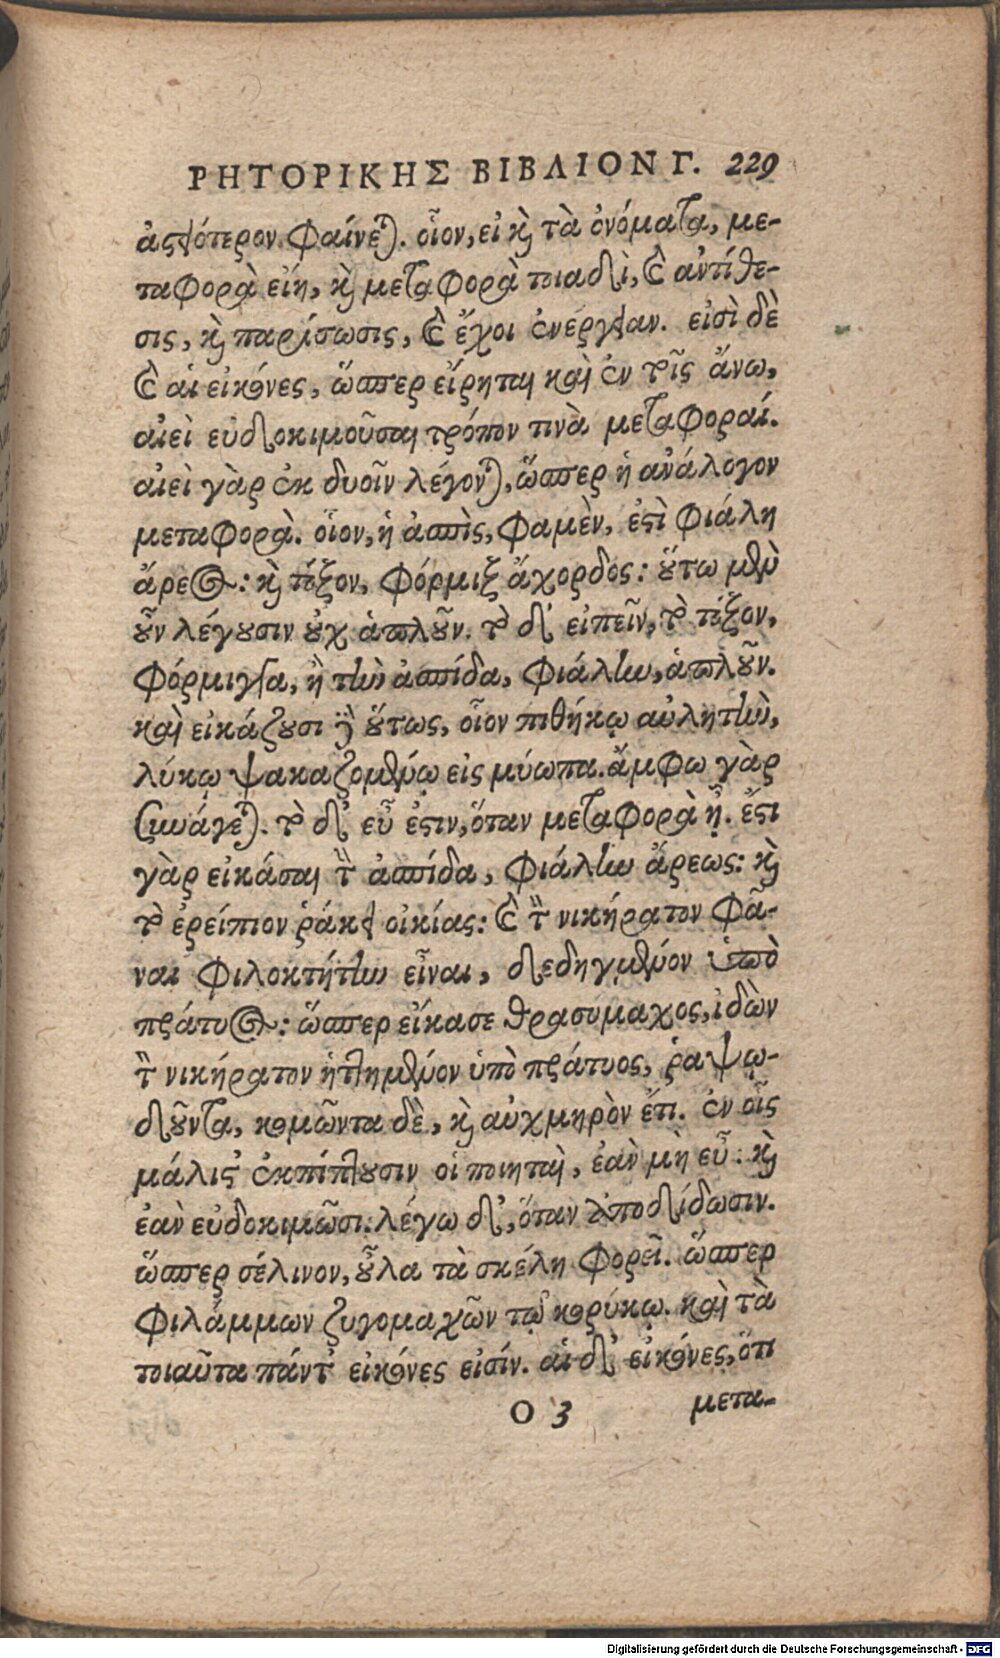 ΡΗΤΟΡΙΚΗΣ ΒΙΒΛΙΟΝ Γ. 229
ἀστειότερον φαίνεται. οἷον, εἰ καὶ τὰ ὀνόματα, με-
ταφορὰ εἴη, καὶ μεταφορὰ τοιαδὶ, καὶ ἀντίθε-
σις, καὶ παρίσωσις, καὶ ἔχοι ἐνέργειαν. εἰσὶ δὲ
καὶ αἱ εἰκόνες, ὥσπερ εἴρηται καὶ ἐν τοῖς ἄνω,
αἰεὶ εὐδοκιμοῦσαι τρόπον τινὰ μεταφοραί.
αἰεὶ γὰρ ἐκ δυοῖν λέγονται, ὥσπερ ἡ ἀνάλογον
μεταφορὰ. οἷον, ἡ ἀσπὶς, φαμὲν, ἐστὶ φιάλη
ἄρεος: καὶ τόξον, φόρμιξ ἄχορδος: οὕτω μὲν
οὖν λέγουσιν οὐχ ἁπλοῦν. τὸ δ' εἰπεῖν, τὸ τόξον,
φόρμιγγα, ἢ τὴν ἀσπίδα, φιάλην, ἁπλοῦν.
καὶ εἰκάζουσι δὲ οὕτως, οἷον πιθήκῳ αὐλητὴν,
λύκῳ ψακαζομένῳ εἰς μύωπα. ἄμφω γὰρ
συνάγεται. τὸ δ' εὖ ἐστιν, ὅταν μεταφορὰ ᾖ. ἔστι
γὰρ εἰκάσαι τὴν ἀσπίδα, φιάλην ἄρεως: καὶ
τὸ ἐρείπιον ῥάκει οἰκίας: καὶ τὸν νικήρατον φά-
ναι φιλοκτήτην εἶναι, δεδηγμένον ὑπὸ
πράτυος: ὥσπερ εἴκασε θρασύμαχος, ἰδὼν
τὸν νικήρατον ἡττημένον ὑπὸ πράτυος, ῥαψῳ-
δοῦντα, κομῶντα δὲ, καὶ αὐχμηρὸν ἔτι. ἐν οἷς
μάλιστ' ἐκπίπτουσιν οἱ ποιηταὶ, ἐὰν μὴ εὖ: καὶ
ἐὰν εὐδοκιμῶσι. λέγω δ', ὅταν ἀποδίδωσιν.
ὥσπερ σέλινον, οὖλα τὰ σκέλη φορεῖ. ὥσπερ
φιλάμμων ζυγομαχῶν τῷ κορύκῳ. καὶ τὰ
τοιαῦτα πάντ' εἰκόνες εἰσίν. αἱ δ' εἰκόνες, ὅτι
Ο 3 μετα-
Digitalisierung gefördert durch die Deutsche Forschungsgemeinschaft - DFG